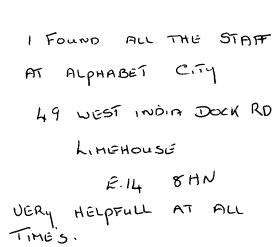 I FOUND ALL THE STAFF
AT ALPHABET CITY
49 WEST INDIA DOCK RD
LIMEHOUSE
E.14 8HN
VERY HELPFULL AT ALL
TIME'S.